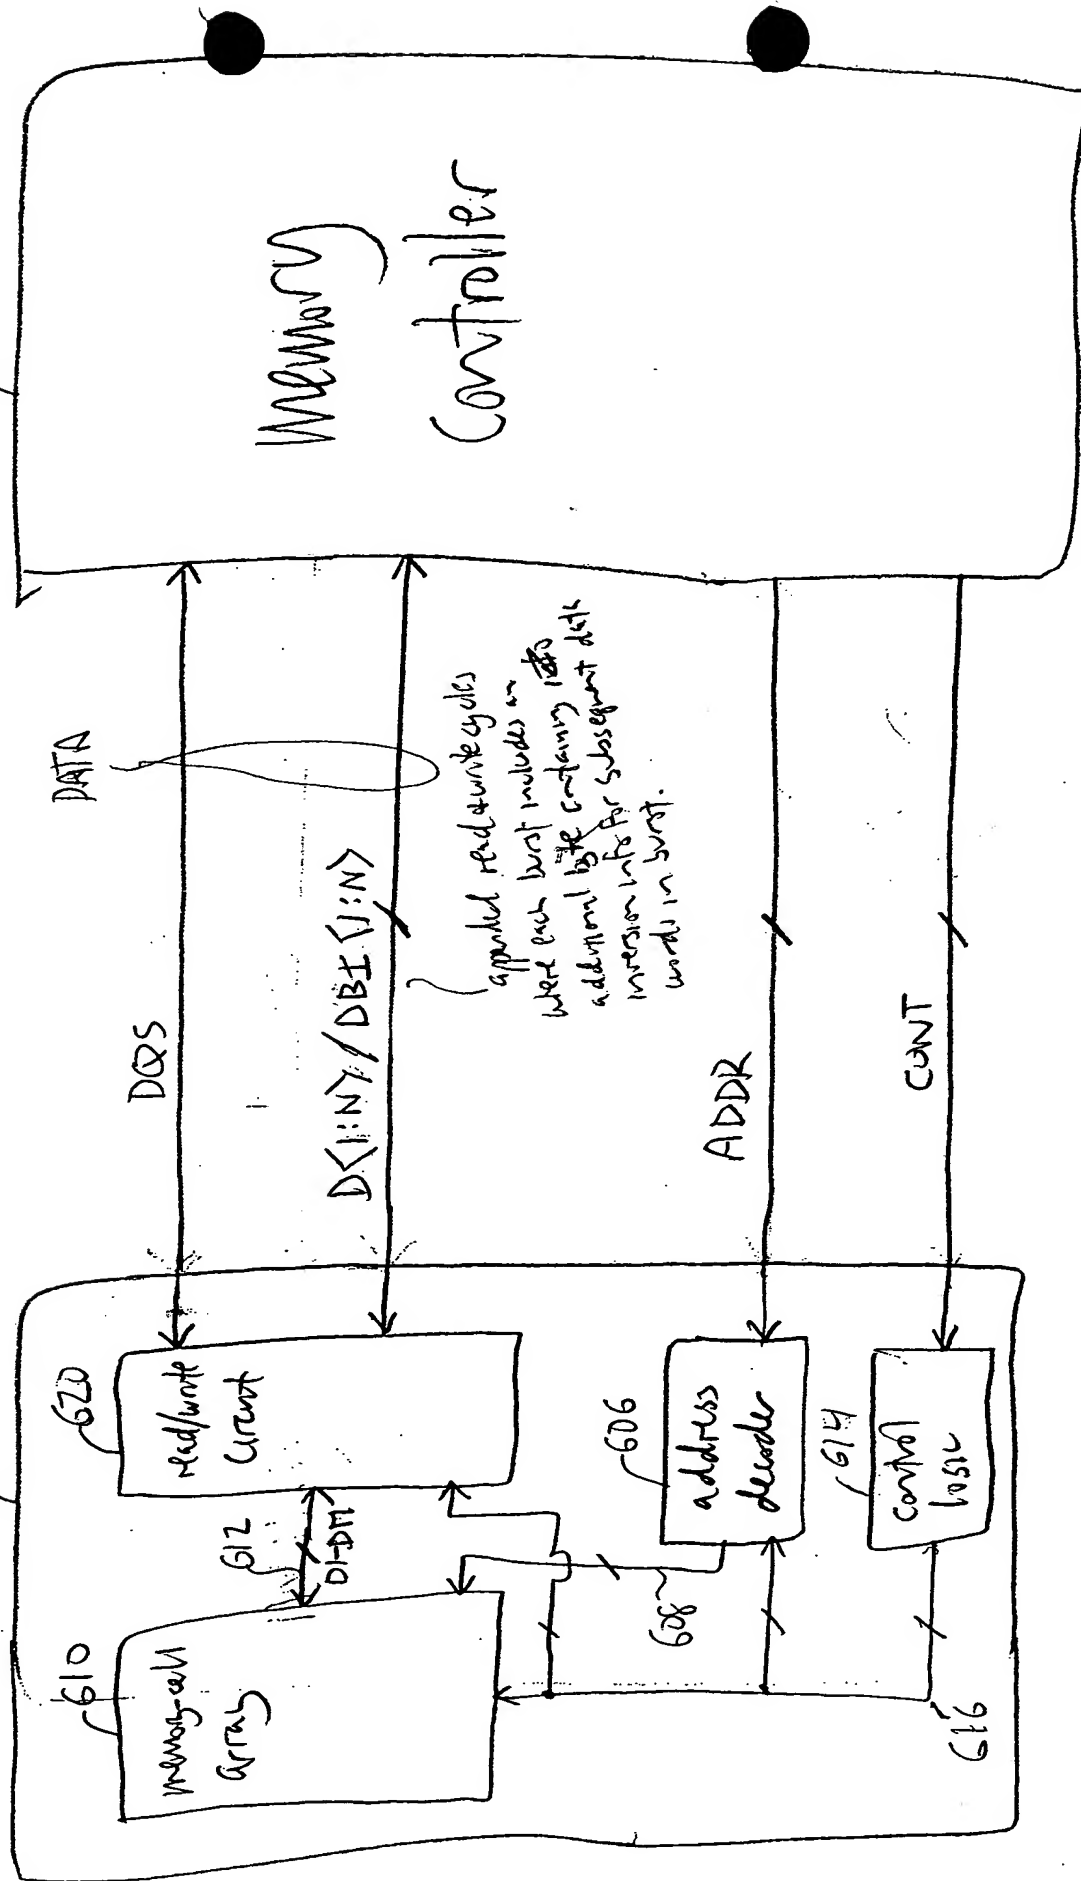 Memory
Controller
DATA
DQS
D<1:N>/DBI<1:N>
appended read & write cycles
where each burst includes an
additional byte containing
inversion info for subsequent data
words in burst.
ADDR
CONT
620
read/write
circuit
612
D1-DM
610
memory-cell
array
606
address
decoder
608
614
control
logic
616